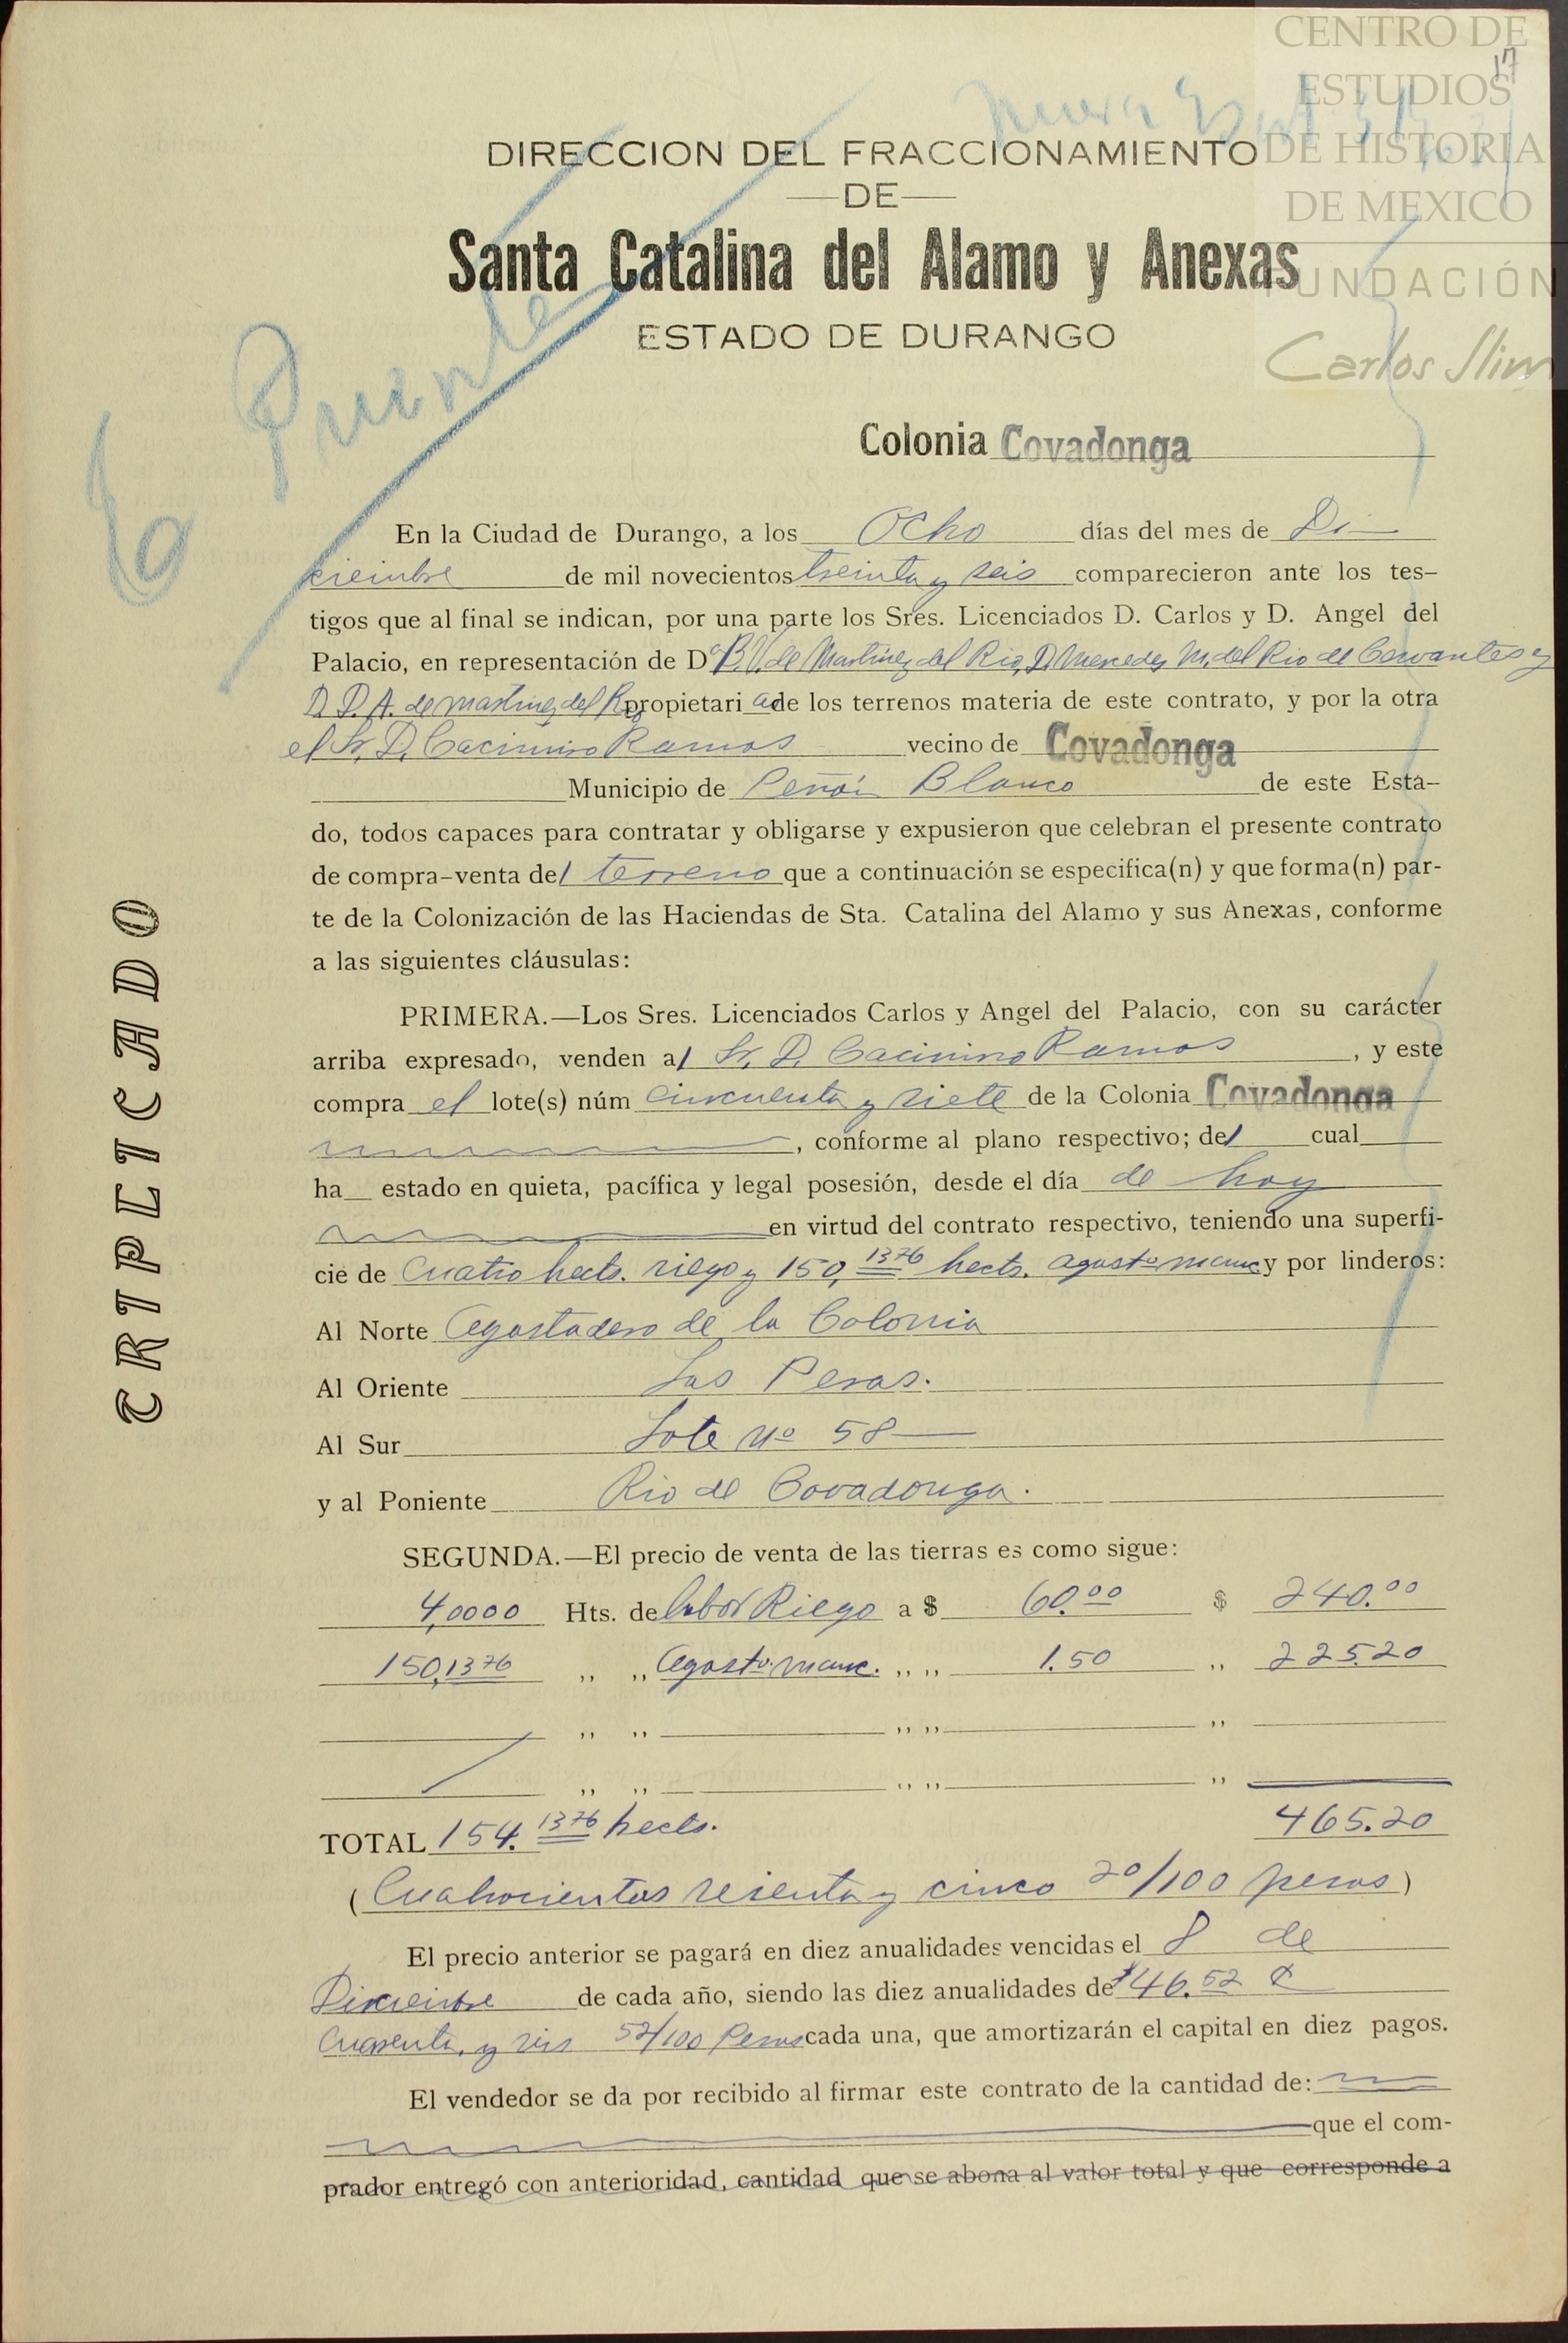 CENTRO DE
ESTUDIOS
DE HISTORIA
DE MEXICO
FUNDACIÓN
Carlos Slim
17
DIRECCION DEL FRACCIONAMIENTO
—DE—
Santa Catalina del Alamo y Anexas
ESTADO DE DURANGO
Colonia Covadonga
TRIPLICADO
En la Ciudad de Durango, a los Ocho días del mes de Di—
ciembre de mil novecientos treinta y seis comparecieron ante los tes-
tigos que al final se indican, por una parte los Sres. Licenciados D. Carlos y D. Angel del
Palacio, en representación de Dª B. V. de Martínez del Rio, D. Mercedes M. del Rio de Cervantes y
D. D. A. de Martinez del Rio propietari as de los terrenos materia de este contrato, y por la otra
el Sr. D. Cacimiro Ramos vecino de Covadonga
Municipio de Peñón Blanco de este Esta-
do, todos capaces para contratar y obligarse y expusieron que celebran el presente contrato
de compra-venta del terreno que a continuación se especifica(n) y que forma(n) par-
te de la Colonización de las Haciendas de Sta. Catalina del Alamo y sus Anexas, conforme
a las siguientes cláusulas:
PRIMERA.—Los Sres. Licenciados Carlos y Angel del Palacio, con su carácter
arriba expresado, venden al Sr. D. Cacimiro Ramos, y este
compra el lote(s) núm cincuenta y siete de la Colonia Covadonga
, conforme al plano respectivo; del cual
ha estado en quieta, pacífica y legal posesión, desde el día de hoy
en virtud del contrato respectivo, teniendo una superfi-
cie de Cuatro hects. riego y 150,1376 hects. agosto. manc y por linderos:
Al Norte Agostadero de la Colonia
Al Oriente Las Peras.
Al Sur Lote Nº 58—
y al Poniente Rio de Covadonga.
SEGUNDA.—El precio de venta de las tierras es como sigue:
4,0000 Hts. de labor Riego a $ 60.00 $ 240.00
150,1376 ,, ,, Agosto. manc. ,, ,, 1.50 ,, 225.20
,, ,, ,, ,, ,,
,, ,, ,, ,, ,,
TOTAL 154.1376 hects. 465.20
(Cuatrocientos sesenta y cinco 20/100 pesos)
El precio anterior se pagará en diez anualidades vencidas el 8 de
Diciembre de cada año, siendo las diez anualidades de $46.52
Cuarenta y seis 52/100 Pesos cada una, que amortizarán el capital en diez pagos.
El vendedor se da por recibido al firmar este contrato de la cantidad de:
que el com-
prador entregó con anterioridad, cantidad que se abona al valor total y que corresponde a